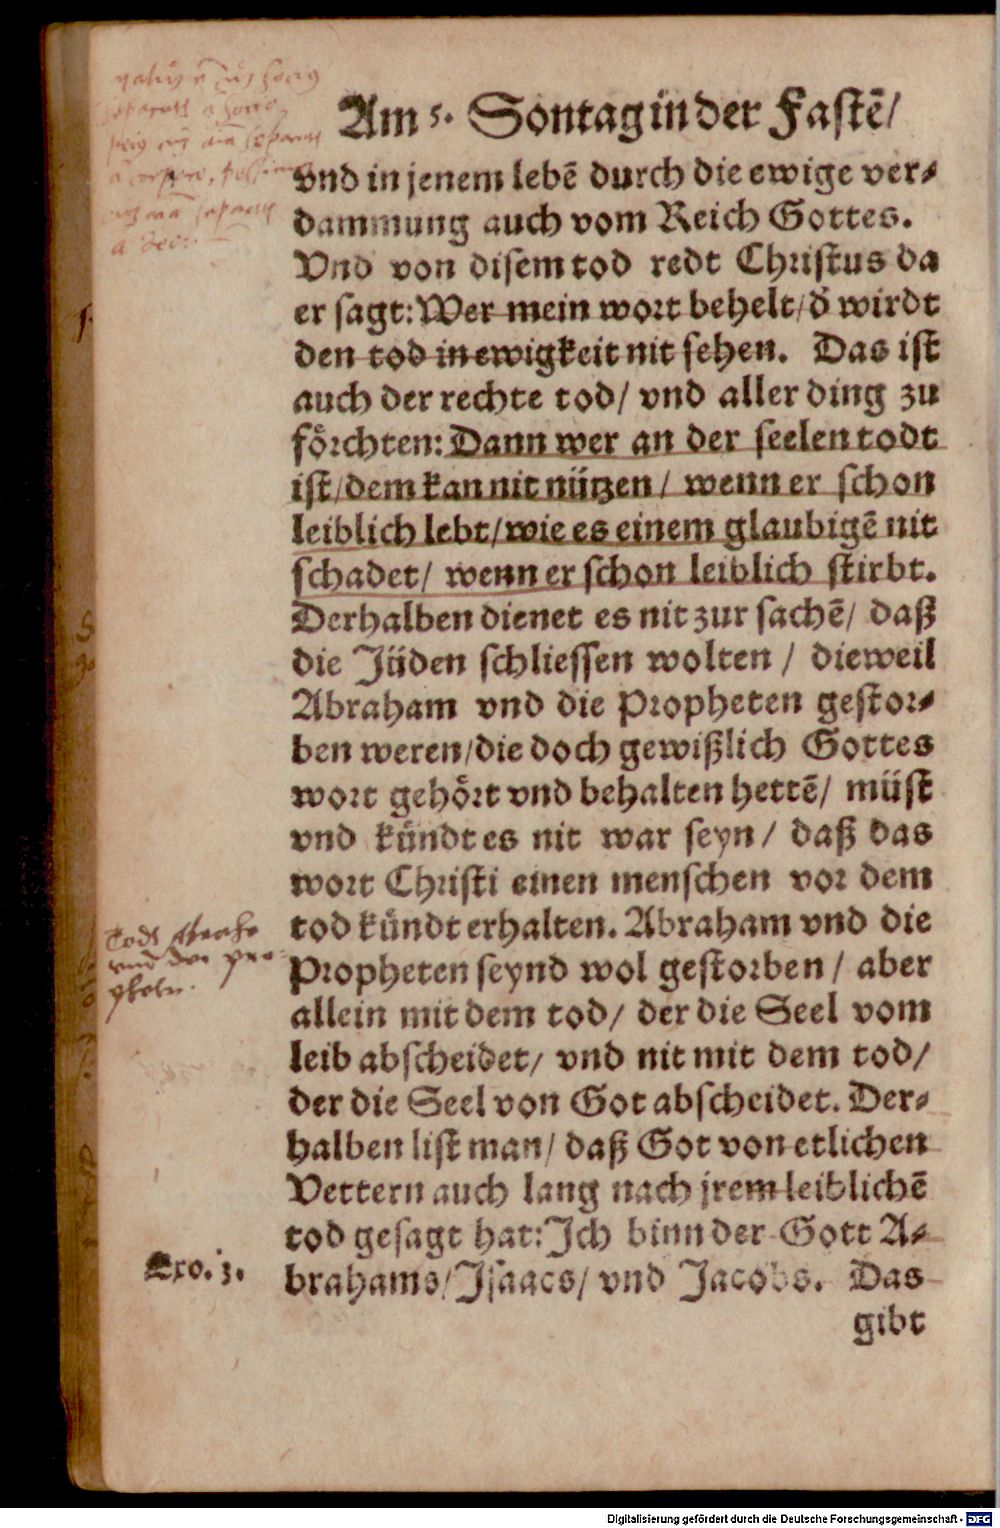 Am 5. Sontag in der Fastē/
vnd in jenem lebē durch die ewige ver⸗
dammung auch vom Reich Gottes.
Vnd von disem tod redt Christus da
er sagt: Wer mein wort behelt/ d̄ wirdt
den tod in ewigkeit nit sehen. Das ist
auch der rechte tod/ vnd aller ding zu
förchten: Dann wer an der seelen todt
ist/ dem kan nit nützen/ wenn er schon
leiblich lebt/ wie es einem glaubigē nit
schadet/ wenn er schon leiblich stirbt.
Derhalben dienet es nit zur sachē/ daß
die Jüden schliessen wolten/ dieweil
Abraham vnd die Propheten gestor⸗
ben weren/ die doch gewißlich Gottes
wort gehört vnd behalten hettē/ müst
vnd kündt es nit war seyn/ daß das
wort Christi einen menschen vor dem
tod kündt erhalten. Abraham vnd die
Propheten seynd wol gestorben/ aber
allein mit dem tod/ der die Seel vom
leib abscheidet/ vnd nit mit dem tod/
der die Seel von Got abscheidet. Der⸗
halben list man/ daß Got von etlichen
Vettern auch lang nach jrem leiblichē
tod gesagt hat: Ich binn der Gott A⸗
Exo. 3.
brahams/ Isaacs/ vnd Jacobs. Das
gibt
Digitalisierung gefördert durch die Deutsche Forschungsgemeinschaft - DFG